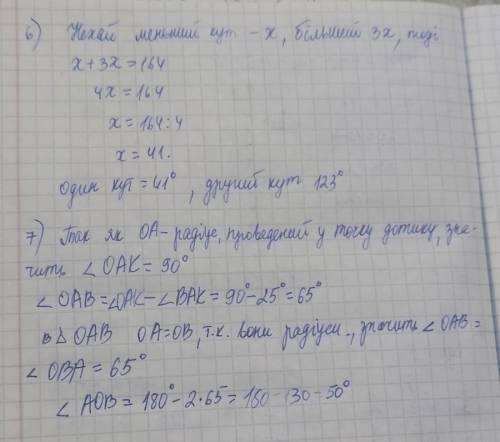 6) Нехай менший кут - x, більший 3x, тоді
x + 3x = 164
4x = 164
x = 164 : 4
x = 41.
Один кут = 41°, другий кут 123°
7) Так як OA - радіус, проведений у точку дотику, зна-
чить ∠OAK = 90°
∠OAB = ∠OAK - ∠BAK = 90° - 25° = 65°
в △ OAB OA = OB, т.к. вони радіуси., значить ∠OAB =
∠OBA = 65°
∠AOB = 180° - 2·65 = 180 - 130 = 50°